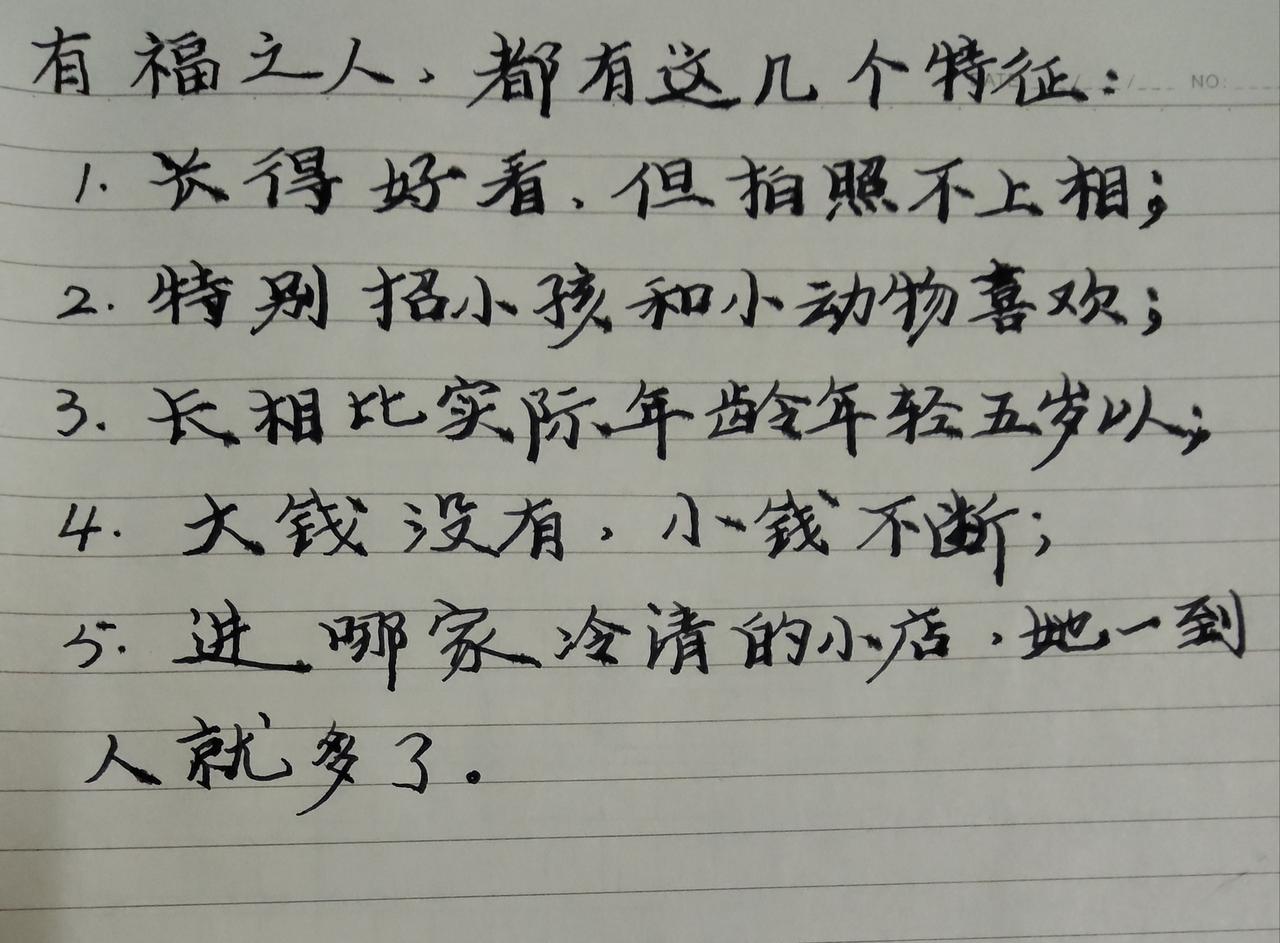 有福之人，都有这几个特征：
1. 长得好看，但拍照不上相；
2. 特别招小孩和小动物喜欢；
3. 长相比实际年龄年轻五岁以；
4. 大钱没有，小钱不断；
5. 进哪家冷清的小店，她一到
人就多了。
NO: